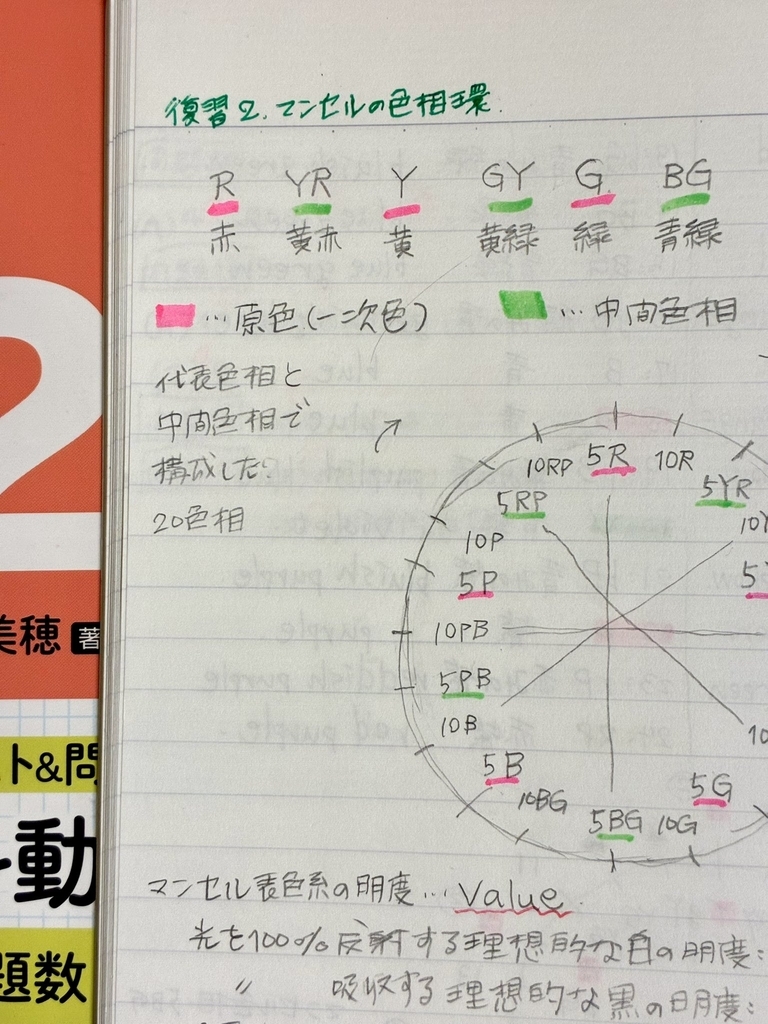 復習2. マンセルの色相環
R YR Y GY G BG
赤 黄赤 黄 黄緑 緑 青緑
…原色(一次色) …中間色相
代表色相と
中間色相で
構成した
20色相
10RP 5R 10R
5RP 5YR
10P
5P
10PB
5PB
10B
5B 5G
10BG 5BG 10G
マンセル表色系の明度… Value
光を100%反射する理想的な白の明度:
〃 吸収する理想的な黒の明度:
2
美穂 著
ト&問
動
題数